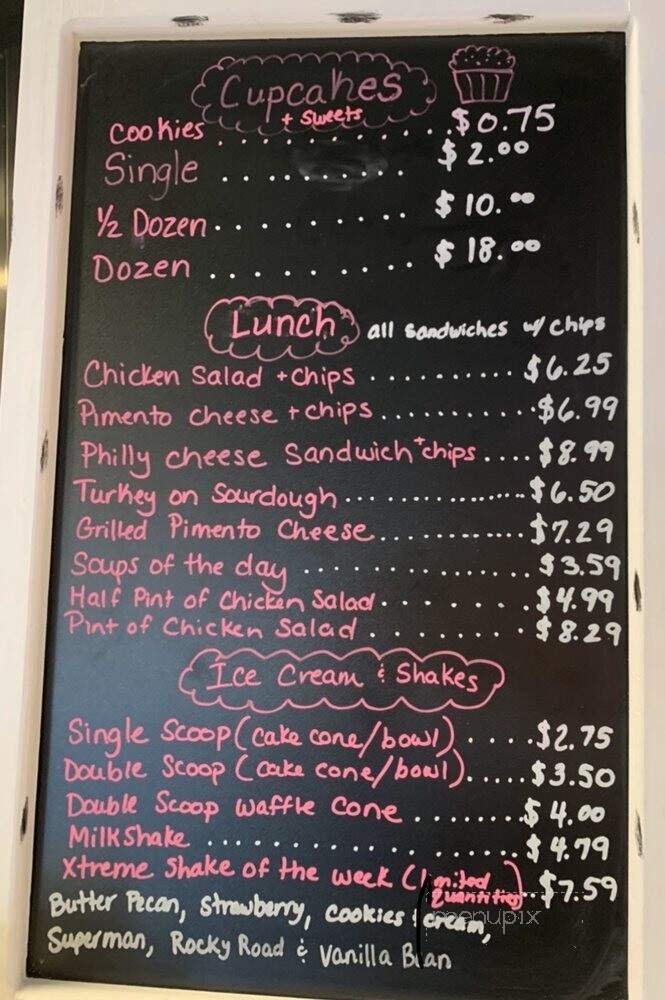 Cupcakes
+ Sweets
Cookies . . . . . . . . . . $0.75
Single . . . . . . . . . . $2.00
1/2 Dozen . . . . . . . . . $10.00
Dozen . . . . . . . . . $18.00
Lunch all Sandwiches w/ chips
Chicken Salad + chips . . . . . . . . . . $6.25
Pimento cheese + chips . . . . . . . . . . $6.99
Philly cheese Sandwich + chips . . . . $8.99
Turkey on Sourdough . . . . . . . . . . . . . $6.50
Grilled Pimento Cheese . . . . . . . . . . . $7.29
Soups of the day . . . . . . . . . . . . $3.59
Half Pint of Chicken Salad . . . . . . $4.99
Pint of Chicken Salad . . . . . . . . $8.29
Ice Cream & Shakes
Single Scoop (cake cone/bowl) . . . . . $2.75
Double Scoop (cake cone/bowl) . . . . . $3.50
Double Scoop Waffle Cone . . . . . . . . $4.00
Milkshake . . . . . . . . . . . . . . . . $4.79
Xtreme Shake of the week (limited Quantities) . . $7.59
Butter Pecan, Strawberry, Cookies & cream,
Superman, Rocky Road & Vanilla Bean
menupix